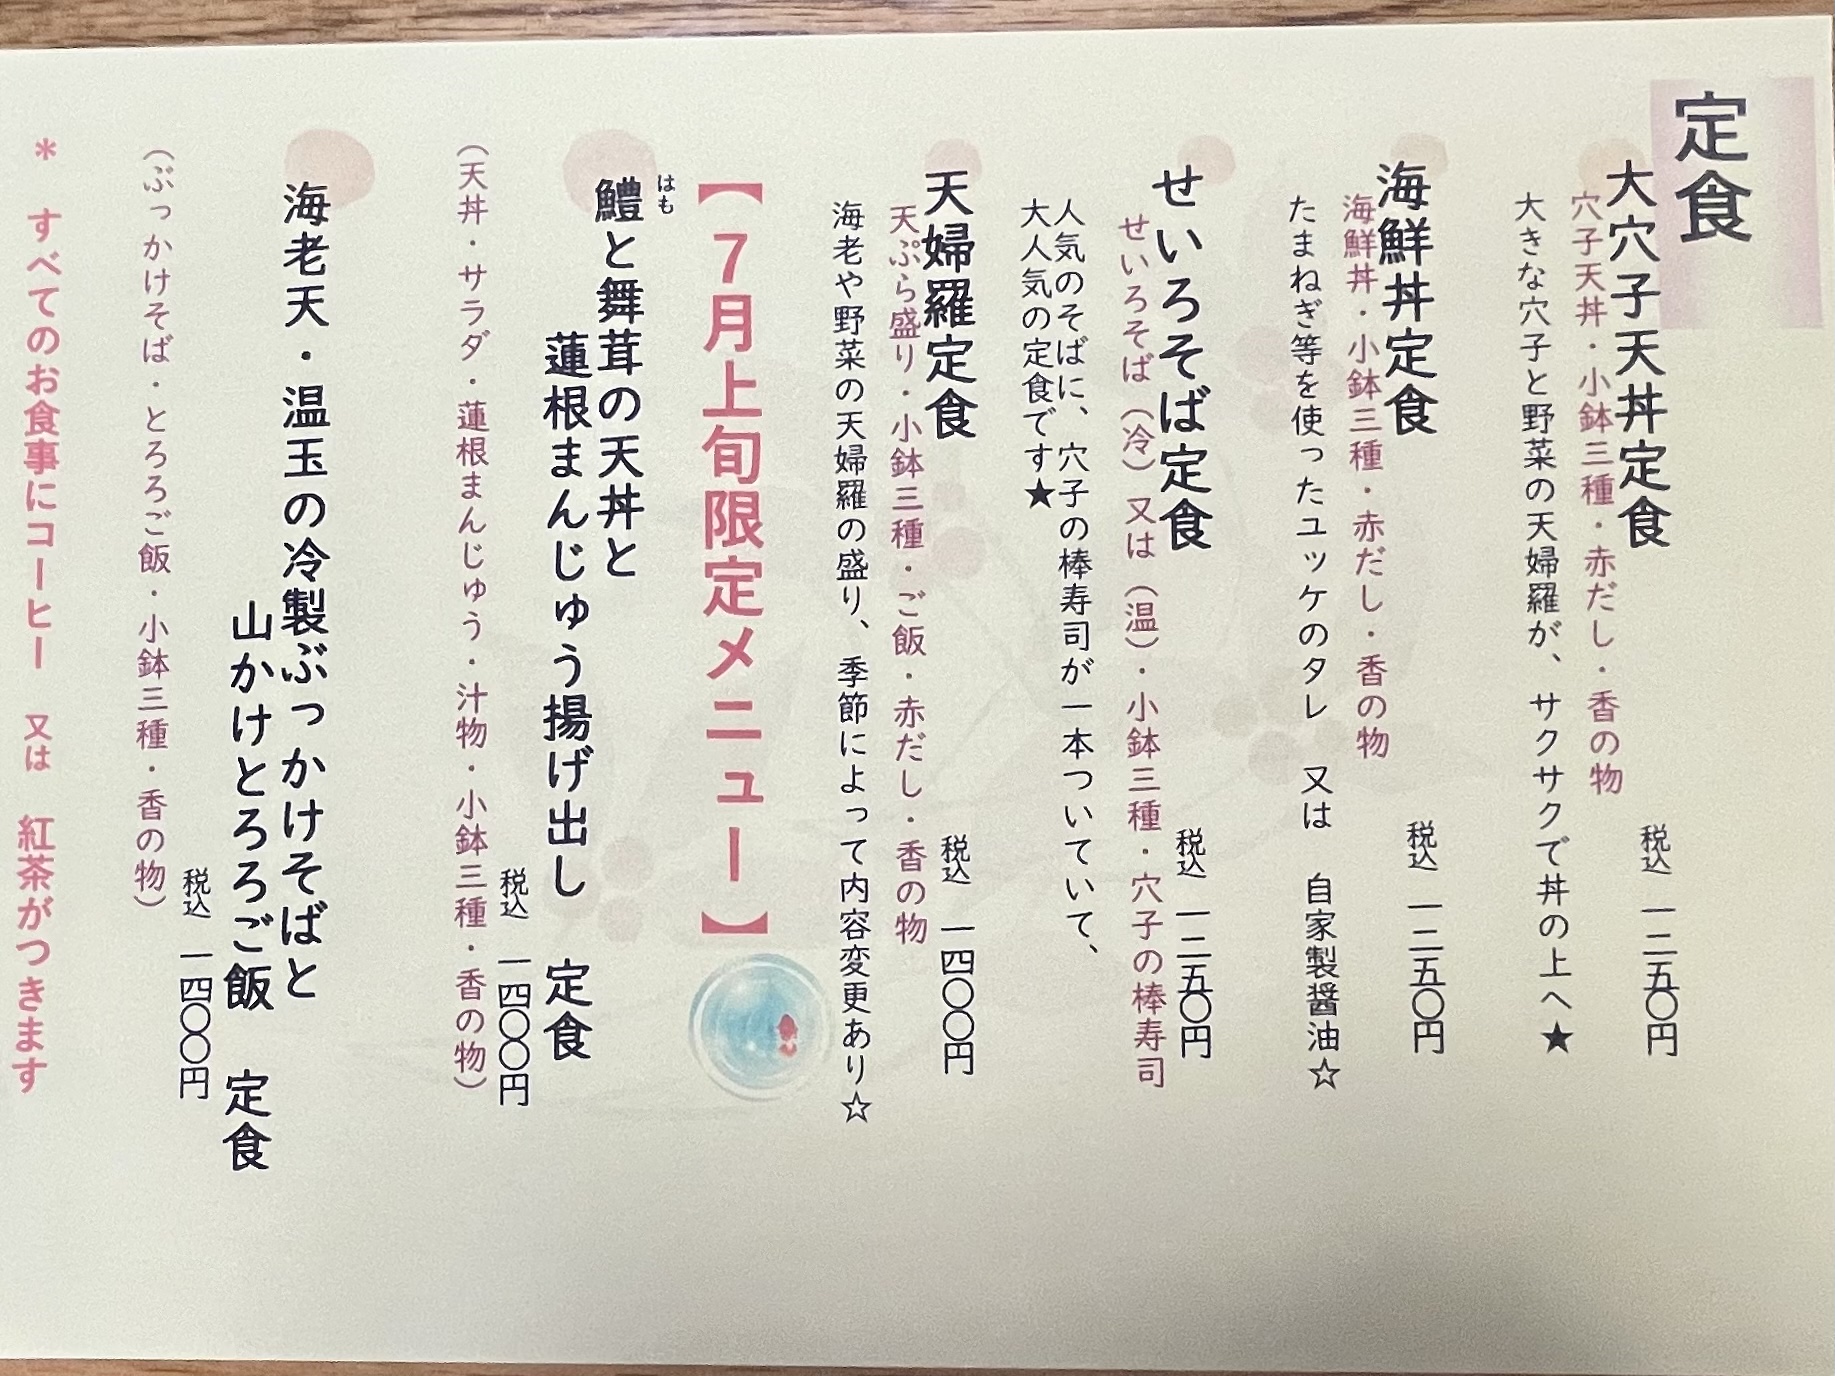 定食
大穴子天丼定食
穴子天丼・小鉢三種・赤だし・香の物
税込 一二五〇円
大きな穴子と野菜の天婦羅が、サクサクで丼の上へ★
海鮮丼定食
海鮮丼・小鉢三種・赤だし・香の物
税込 一二五〇円
たまねぎ等を使ったユッケのタレ 又は 自家製醤油☆
せいろそば定食
せいろそば（冷）又は（温）・小鉢三種・穴子の棒寿司
税込 一二五〇円
人気のそばに、穴子の棒寿司が一本ついていて、
大人気の定食です★
天婦羅定食
天ぷら盛り・小鉢三種・ご飯・赤だし・香の物
税込 一四〇〇円
海老や野菜の天婦羅の盛り、季節によって内容変更あり☆
【7月上旬限定メニュー】
はも
鱧と舞茸の天丼と
蓮根まんじゅう揚げ出し 定食
税込 一四〇〇円
（天丼・サラダ・蓮根まんじゅう・汁物・小鉢三種・香の物）
海老天・温玉の冷製ぶっかけそばと
山かけとろろご飯 定食
税込 一四〇〇円
（ぶっかけそば・とろろご飯・小鉢三種・香の物）
＊ すべてのお食事にコーヒー 又は 紅茶がつきます